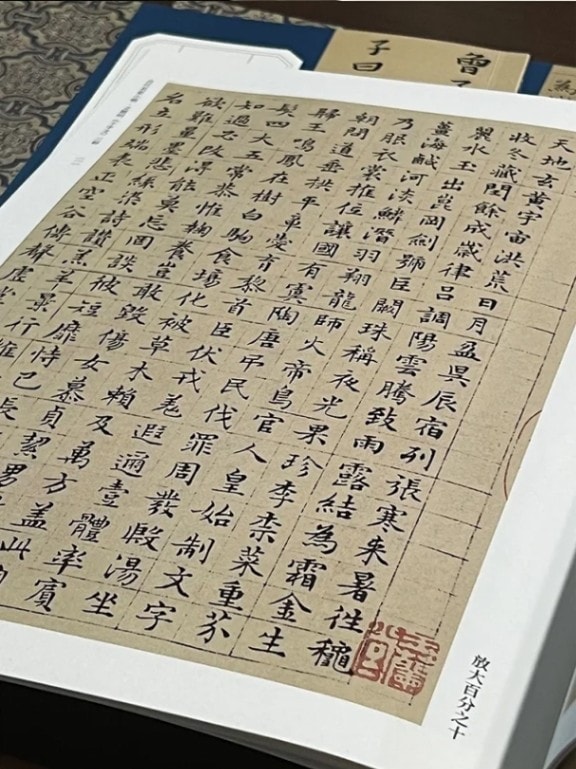 天地玄黃宇宙洪荒日月盈昃辰宿列張寒来暑往穐
收冬藏閏餘成歲律呂調陽雲騰致雨露結為霜金生
麗水玉出崑岡劍號巨闕珠稱夜光果珍李柰菜重芥
薑海鹹河淡鱗潛羽翔龍師火帝鳥官人皇始制文字
乃服衣裳推位讓國有虞陶唐吊民伐罪周發殷湯坐
朝問道垂拱平章愛育黎首臣伏戎羌遐邇壹體率賓
歸王鳴鳳在樹白駒食場化被草木賴及萬方蓋此
髮四大五常恭惟鞠養豈敢毀傷女慕貞絜男
知過必改得能莫忘罔談彼短靡恃己長
欲難量墨悲絲染詩讚羔羊景行維
名立形端表正空谷傳聲虛堂
放大百分之十
曾子
子曰